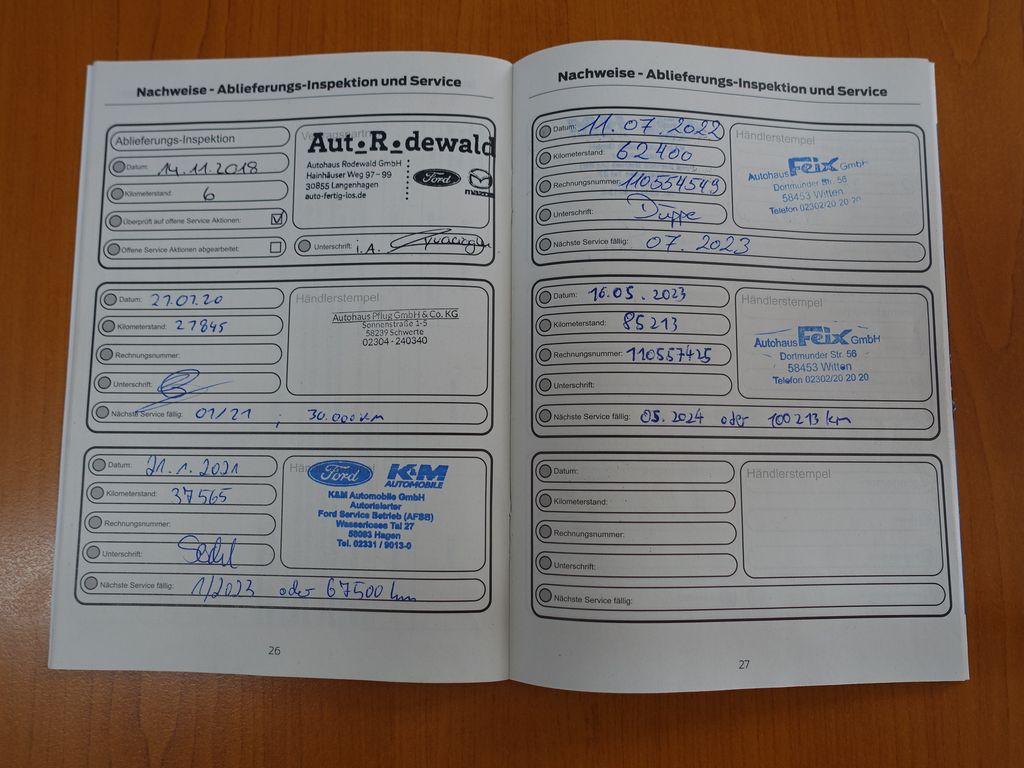 Nachweise - Ablieferungs-Inspektion und Service
Ablieferungs-Inspektion
Datum: 14.11.2018
Kilometerstand: 6
Überprüft auf offene Service Aktionen: ☑
Offene Service Aktionen abgearbeitet: ☐
Aut.R.dewald
Autohaus Rodewald GmbH
Hainhäuser Weg 97 - 99
30855 Langenhagen
auto-fertig-los.de
Ford
mazda
Unterschrift: i.A.
Datum: 27.01.20
Kilometerstand: 27845
Rechnungsnummer:
Unterschrift:
Nächste Service fällig: 01/21 ; 30.000 km
Händlerstempel
Autohaus Pflug GmbH & Co. KG
Sonnenstraße 1-5
58239 Schwerte
02304 - 240340
Datum: 21.1.2021
Kilometerstand: 37565
Rechnungsnummer:
Unterschrift:
Nächste Service fällig: 1/2023 oder 67500 km
Ford K&M
AUTOMOBILE
K&M Automobile GmbH
Autorisierter
Ford Service Betrieb (AFSB)
Wasserloses Tal 27
58093 Hagen
Tel. 02331 / 9013-0
26
Nachweise - Ablieferungs-Inspektion und Service
Datum: 11.07.2022
Kilometerstand: 62400
Rechnungsnummer: 110554549
Unterschrift: Düppe
Nächste Service fällig: 07.2023
Händlerstempel
Autohaus Feix GmbH
Dortmunder Str. 56
58453 Witten
Telefon 02302/20 20 20
Datum: 16.05.2023
Kilometerstand: 85213
Rechnungsnummer: 110557425
Unterschrift:
Nächste Service fällig: 05.2024 oder 100213 km
Händlerstempel
Autohaus Feix GmbH
Dortmunder Str. 56
58453 Witten
Telefon 02302/20 20 20
Datum:
Kilometerstand:
Rechnungsnummer:
Unterschrift:
Nächste Service fällig:
Händlerstempel
27